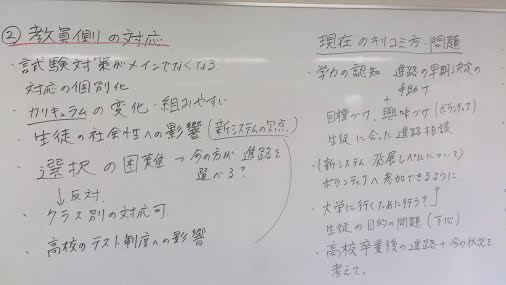 ② 教員側の対応
・試験対策がメインでなくなる
対応の個別化
・カリキュラムの変化・組みやすい
・生徒の社会性への影響(新システムの欠点)
・選択の困難→今の方が進路を
選べる?
↓反対
・クラス別の対応可
・高校のテスト制度への影響
現在のキリコミ方・問題
・学力の認知 進路の早期決定の
手助け
+
目標づけ、興味づけ(ボランティア)
生徒に合った進路相談
・(新システム 発展レベルについて)
ボランティアへ参加できるように
・大学に行くために行う?
生徒の目的の問題(下心)
・高校卒業後の進路+今の状況を
考えて、